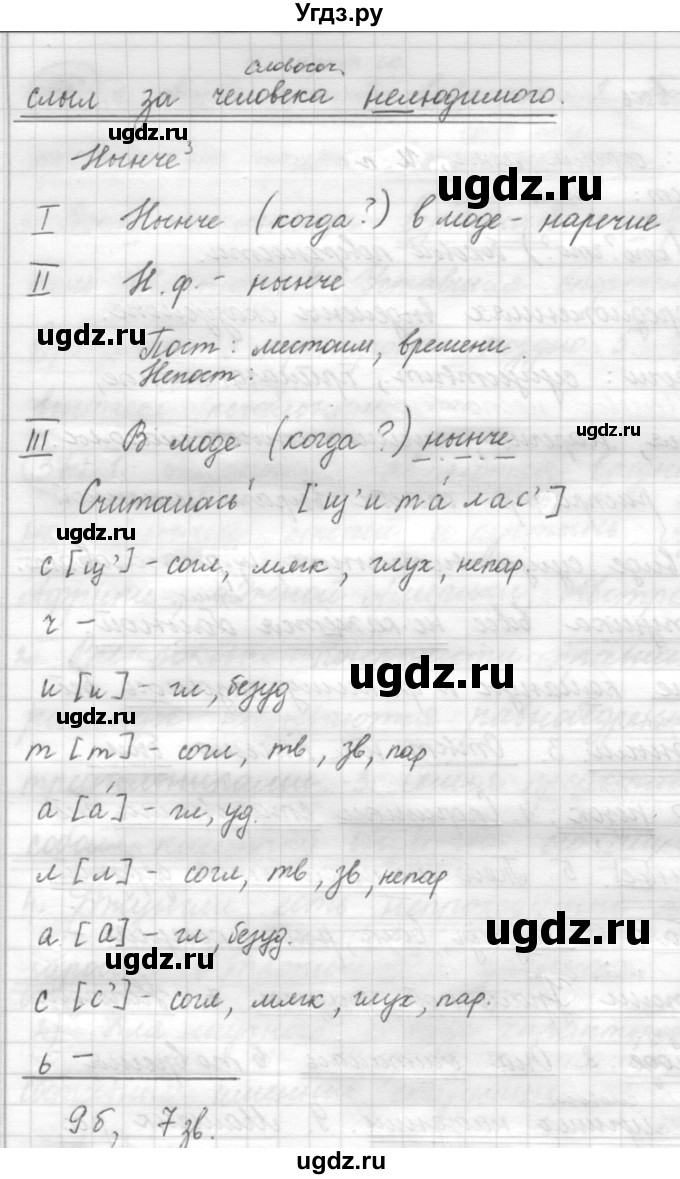 Угдз.ру
словосоч.
слыл за человека нелюдимого.
ugdz.ru
Нынче³
ugdz.ru
I Нынче (когда?) в моде - наречие
II Н.ф. - нынче
ugdz.ru
Пост: местоим, времени.
Непост:
III В моде (когда?) нынче
ugdz.ru
Считалась¹ [щ'итáлас']
ugdz.ru
с [щ'] - согл, мягк, глух, непар.
ч -
ugdz.ru
и [и] - гл, безуд
ugdz.ru
т [т] - согл, тв, зв, пар
а [á] - гл, уд.
л [л] - согл, тв, зв, непар
а [а] - гл, безуд.
ugdz.ru
ugdz.ru
с [с'] - согл, мягк, глух, пар.
ь -
9б, 7 зв.
ugdz.ru